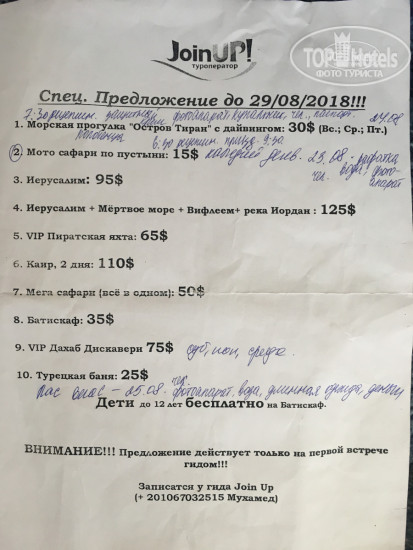 TOPHotels
ФОТО ТУРИСТА
Join UP!
туроператор
Спец. Предложение до 29/08/2018!!!
7.30 фотоаппарат, купальник, чел., паспорт 24.08
1. Морская прогулка "Остров Тиран" с дайвингом: 30$ (Вс.; Ср.; Пт.)
2. Мото сафари по пустыни: 15$ каждый день. 25.08.;
чел. вода, фото-
аппарат
3. Иерусалим: 95$
4. Иерусалим + Мёртвое море + Вифлеем+ река Иордан : 125$
5. VIP Пиратская яхта: 65$
6. Каир, 2 дня: 110$
7. Мега сафари (всё в одном): 50$
8. Батискаф: 35$
9. VIP Дахаб Дискавери 75$ суб, пон, среда.
10. Турецкая баня: 25$
25.08. фотоаппарат, вода, длинная одежда, деньги
Дети до 12 лет бесплатно на Батискаф.
ВНИМАНИЕ!!! Предложение действует только на первой встрече
гидом!!!
Записатся у гида Join Up
(+ 201067032515 Мухамед)